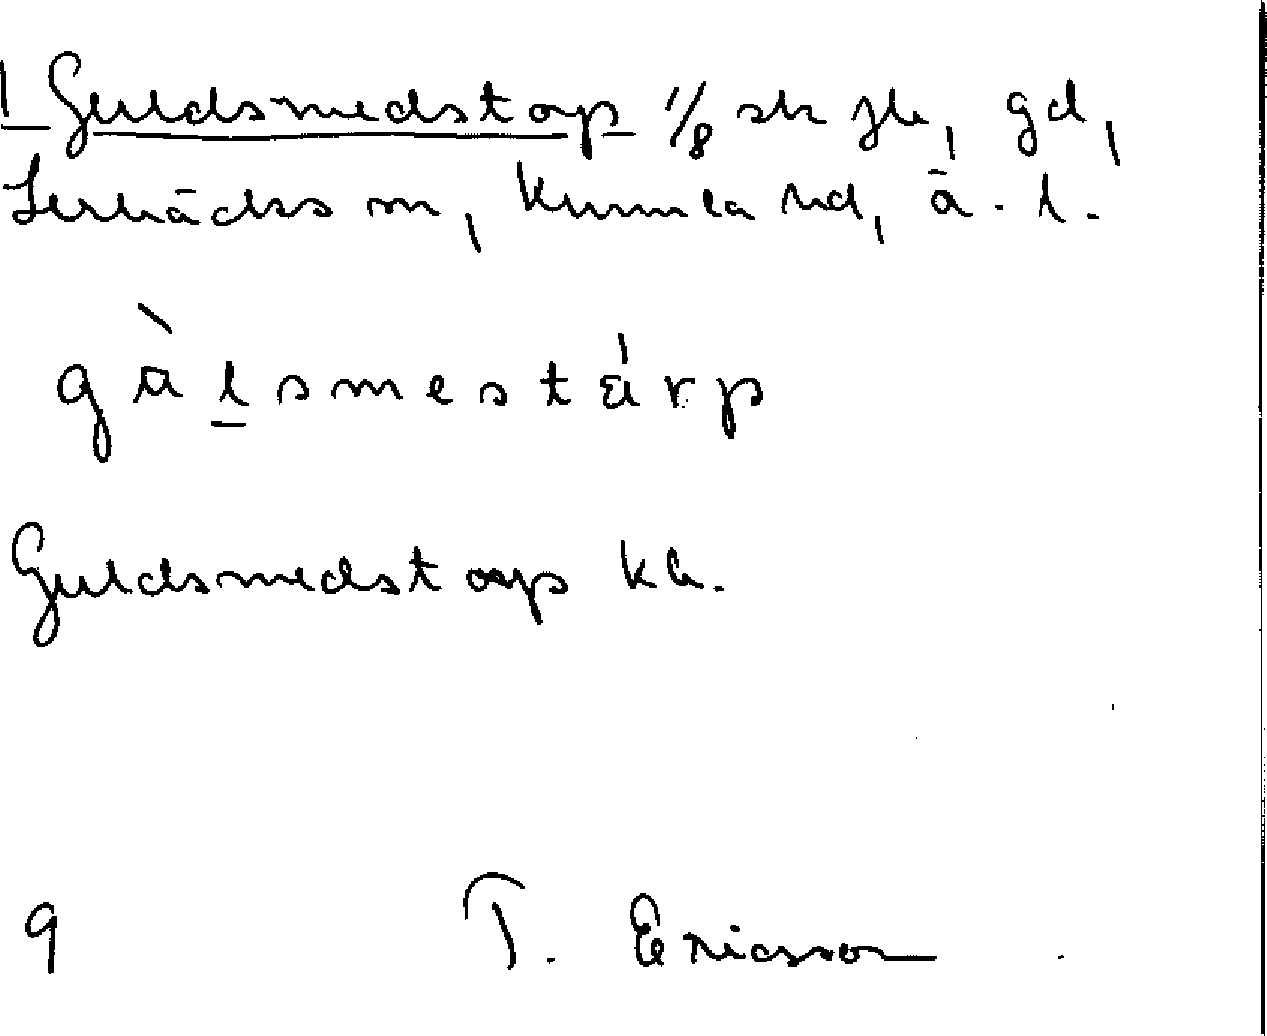 Guldsmedstorp 1/8 sk jb, gd,
Lerbäcks sn, Kumla hd, ä. l.
gàlsmestárp
Guldsmedstorp kb.
9 T. Ericsson